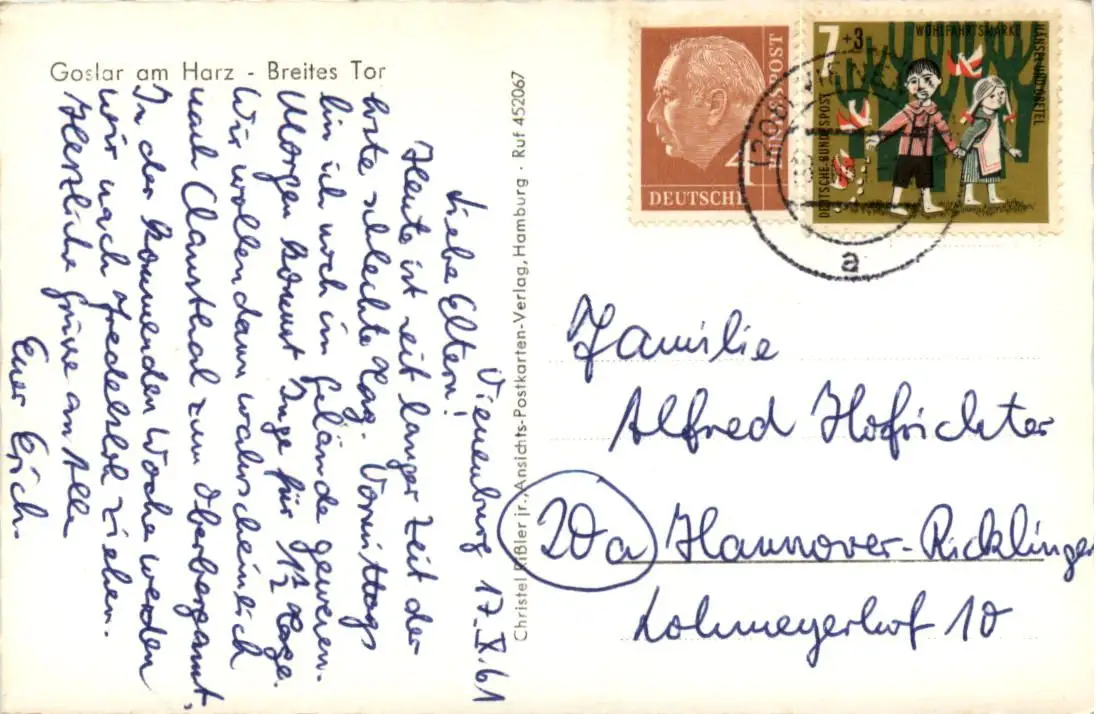 Goslar am Harz - Breites Tor
Vienenburg 17. X. 61
Liebe Eltern!
Heute ist seit langer Zeit der
erste schlechte Tag. Vormittags
bin ich noch im Gelände gewesen.
Morgen kommt Inge für 1½ Tage.
Wir wollen dann wahrscheinlich
nach Clausthal zum Oberbergamt.
In der kommenden Woche werden
wir nach Fredelsloh ziehen.
Herzliche Grüsse an Alle
Euer Erich.
Christel Rißler jr., Ansichts-Postkarten-Verlag, Hamburg · Ruf 452067
DEUTSCHE
BUNDESPOST
4
7+3
WOHLFAHRTSMARKE
HÄNSEL UND GRETEL
DEUTSCHE BUNDESPOST
a
Familie
Alfred Hofrichter
20a Hannover-Ricklingen
Lohmeyerhof 10